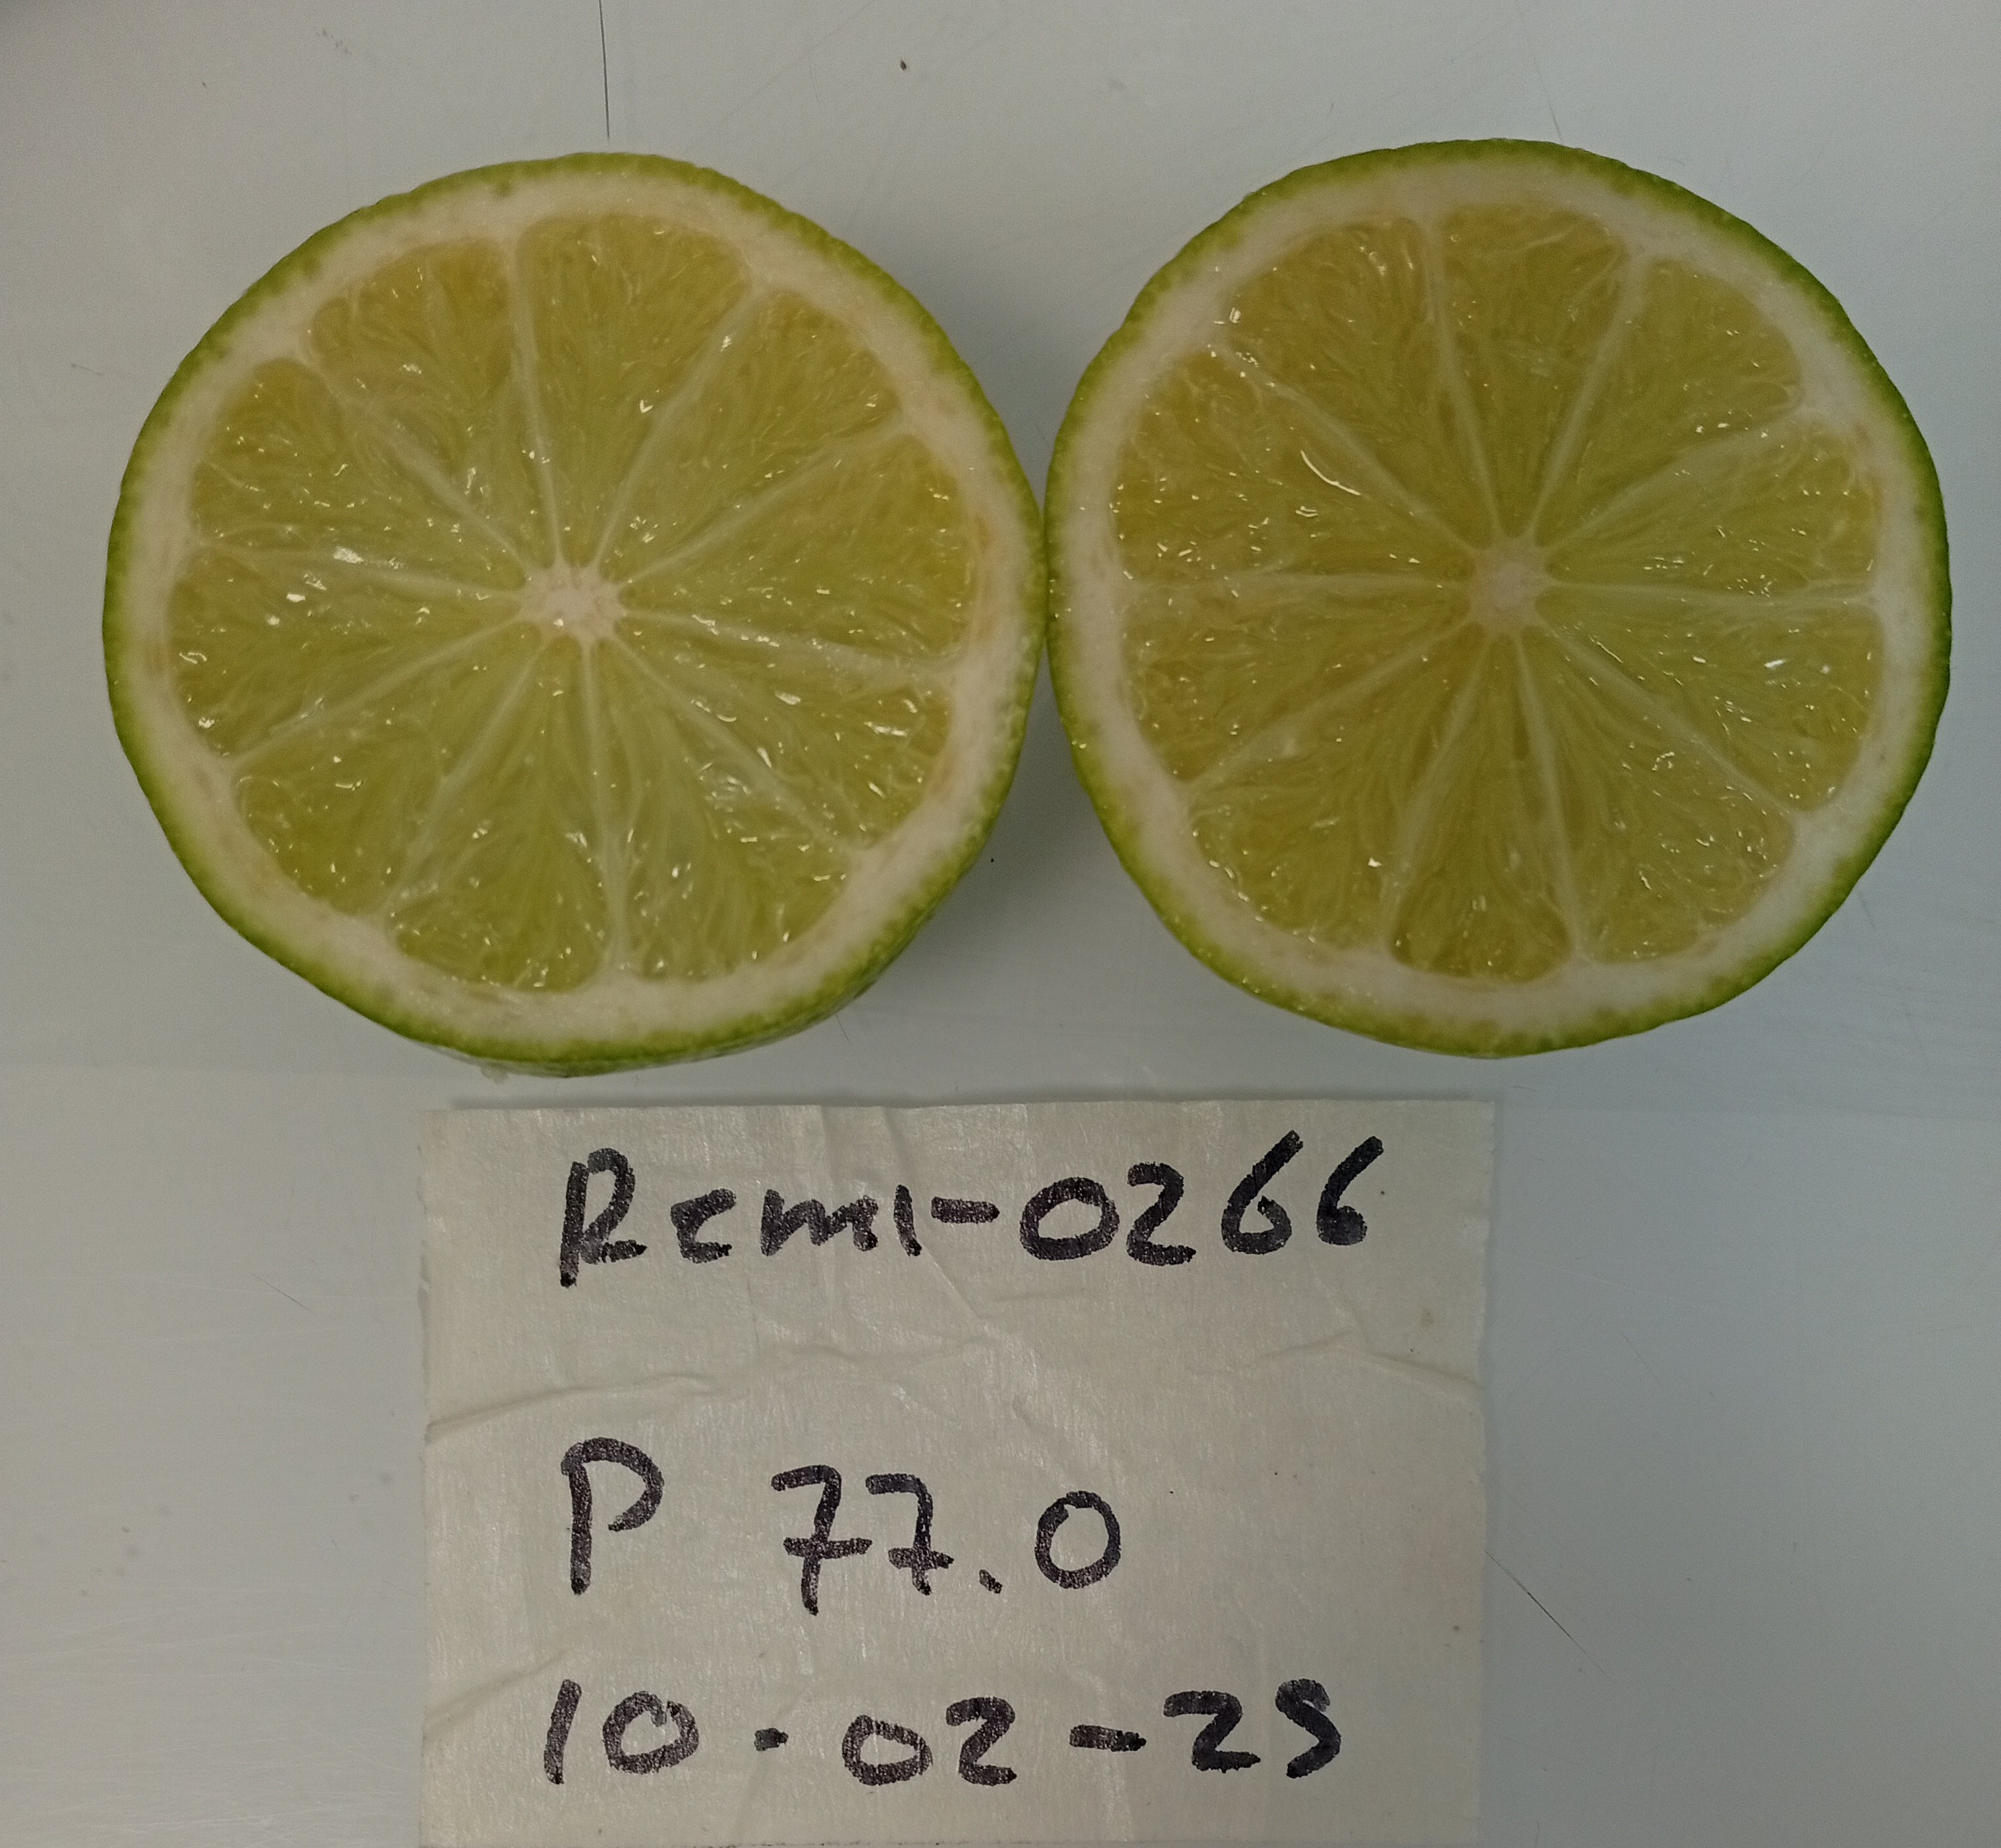 Rem1-0266
P 77.0
10-02-25